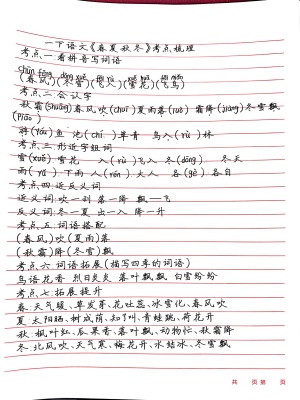 一下语文《春夏秋冬》考点梳理
考点一:看拼音写词语
chūn fēng dōng xuě fēi rù xuě huā fēi niǎo
(春风)(冬雪)(飞入)(雪花)(飞鸟)
考点二:会认字
秋霜(shuāng)春风吹(chuī)夏雨落(luò) 霜降(jiàng)冬雪飘
(piāo)
游(yóu)鱼 池(chí)草青 鸟入(rù)林
考点三:形近字组词
雪(xuě)雪花 入(rù)飞入 冬(dōng) 冬天
雨(yǔ)下雨 人(rén)大人 各(gè)各自
考点四:近反义词
近义词:吹一刮 落一降 飘一飞
反义词:冬一夏 出一入 降一升
考点五:词语搭配
(春风)吹(夏雨)落
(秋霜)降(冬雪)飘
考点六:词语拓展(描写四季的词语)
鸟语花香 烈日炎炎 落叶飘飘 白雪纷纷
考点七:拓展提升
春:天气暖、草发芽、花吐蕊、冰雪化、春风吹
夏:太阳晒、树成荫、知了叫、青蛙跳、荷花开
秋:枫叶红、瓜果香、落叶飘、动物忙、秋霜降
冬:北风吹、天气寒、梅花开、水结冰、冬雪飘
共 页 第 页